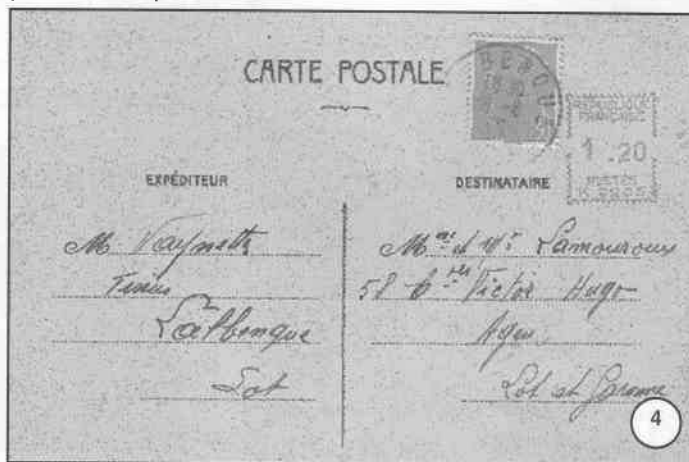 CARTE POSTALE
RÉPUBLIQUE
FRANÇAISE
1.20
POSTES
EXPÉDITEUR
M Vaynette
Lalbenque
Lot
DESTINATAIRE
Mme et Mr Lamouroux
58 Victor Hugo
Agen
Lot et Garonne
4